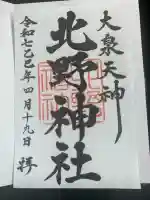 大泉天神
北野神社
令和七乙巳年四月十九日